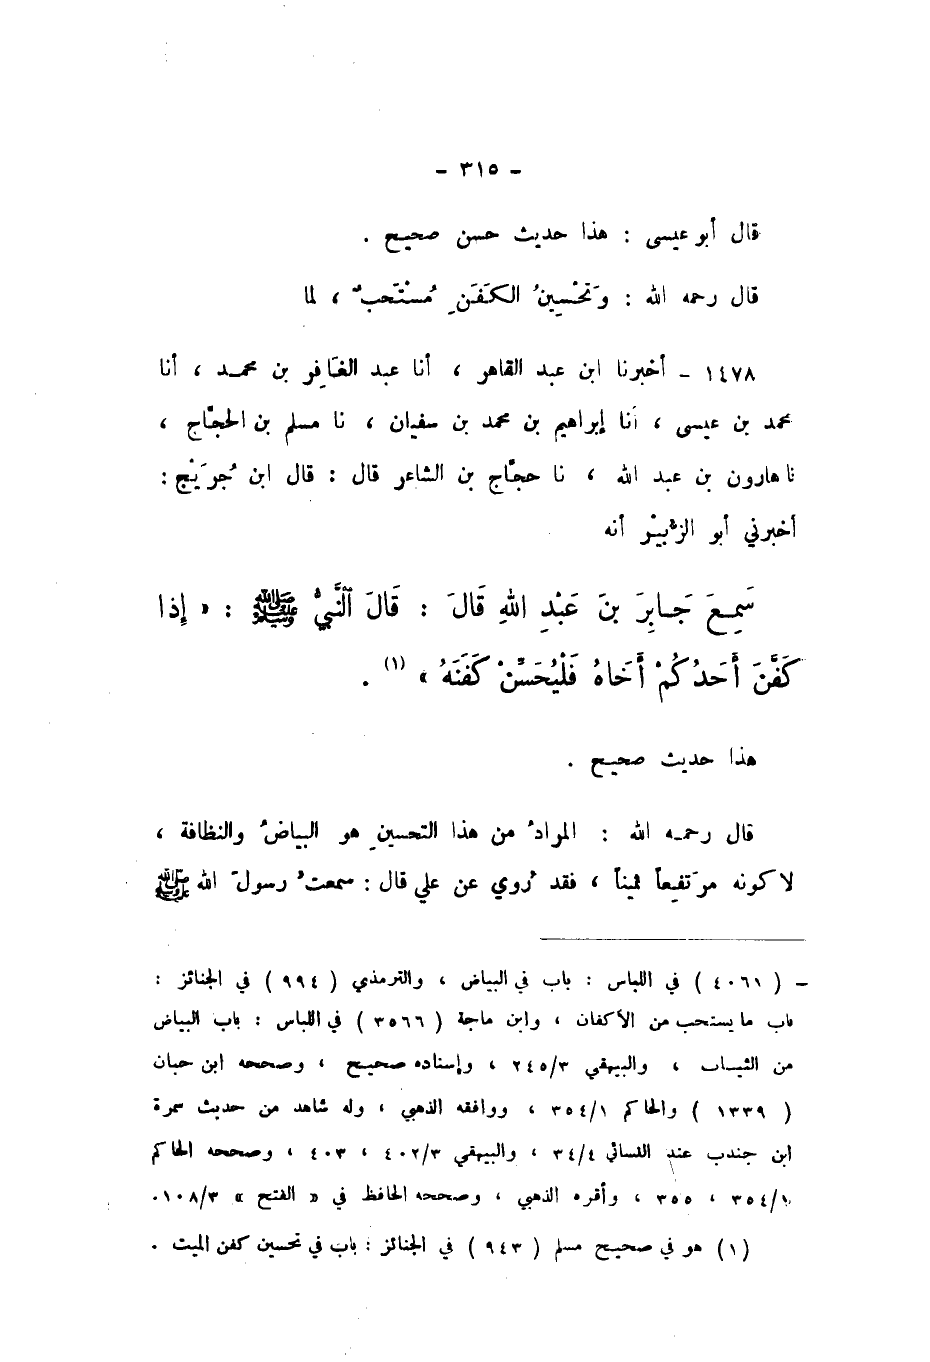 - ٣١٥ -
قال أبو عيسى : هذا حديث حسن صحيح .
قال رحمه الله : وتَحْسِينُ الكَفَنِ مُسْتَحبٌ ، لما
١٤٧٨ - أخبرنا ابن عبد القاهر ، أنا عبد الغَافِر بن محمد ، أنا
محمد بن عيسى ، أنا إبراهيم بن محمد بن سفيان ، نا مسلم بن الحجَّاج ،
نا هارون بن عبد الله ، نا حجَّاج بن الشاعر قال : قال ابن جُرَيْج :
أخبرني أبو الزُّبيْر أنه
سَمِعَ جَابِرَ بنَ عَبْدِ اللهِ قَالَ : قَالَ ٱلنَّبِيُّ ﷺ : « إِذا
كَفَّنَ أَحَدُكُمْ أَخَاهُ فَلْيُحَسِّنْ كَفَنَهُ » (١) .
هذا حديث صحيح .
قال رحمه الله : المرادُ من هذا التحسينِ هو البياضُ والنظافة ،
لا كونه مرتَفِعاً ثميناً ، فقد رُوي عن علي قال : سمعتُ رسولَ الله ﷺ
- ( ٤٠٦١ ) في اللباس : باب في البياض ، والترمذي ( ٩٩٤ ) في الجنائز :
باب ما يستحب من الأكفان ، وابن ماجة ( ٣٥٦٦ ) في اللباس : باب البياض
من الثياب ، والبيهقي ٢٤٥/٣ ، وإسناده صحيح ، وصححه ابن حبان
( ١٣٣٩ ) والحاكم ٣٥٤/١ ، ووافقه الذهبي ، وله شاهد من حديث سمرة
ابن جندب عند النسائي ٣٤/٤ ، والبيهقي ٤٠٢/٣ ، ٤٠٣ ، وصححه الحاكم
٣٥٤/١ ، ٣٥٥ ، وأقره الذهبي ، وصححه الحافظ في « الفتح » ١٠٨/٣.
(١) هو في صحيح مسلم ( ٩٤٣ ) في الجنائز : باب في تحسين كفن الميت .